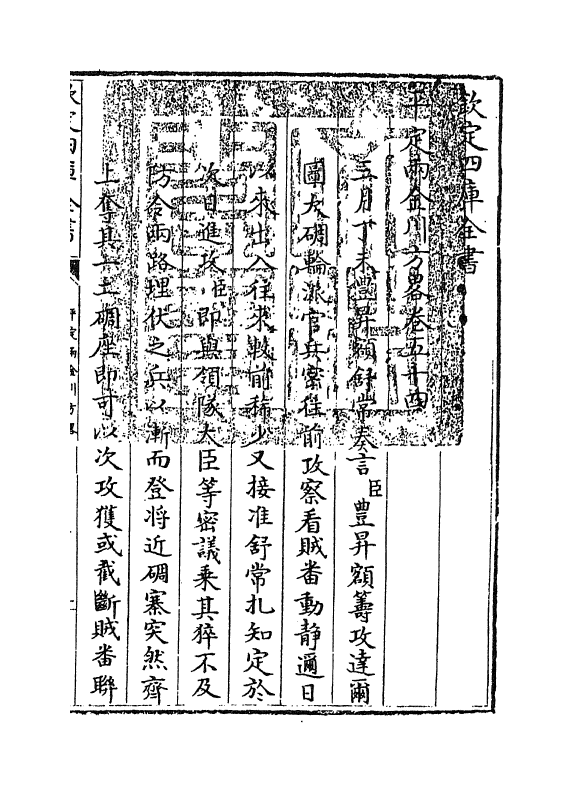 欽定四庫全書
平定兩金川方畧卷五十四
五月丁未豐昇額舒常奏言臣豐昇額籌攻達爾
圖大碉輪派官兵密往前攻察看賊番動静邇日
以來出入往來較前稀少又接准舒常扎知定於
次日進攻臣即與領隊大臣等密議乗其猝不及
防令兩路埋伏之兵以漸而登將近碉寨突然齊
上奪其一土碉座即可以次攻獲或截斷賊番聯
欽定四庫全書
平定兩金川方畧